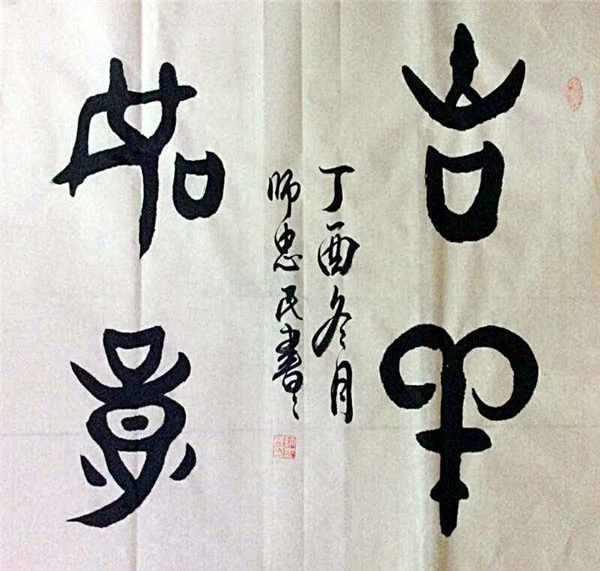 吉羊
如意
丁酉冬月
师忠民書之